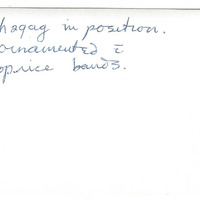 hagag in position.
ornamented c̄
oprice bands.